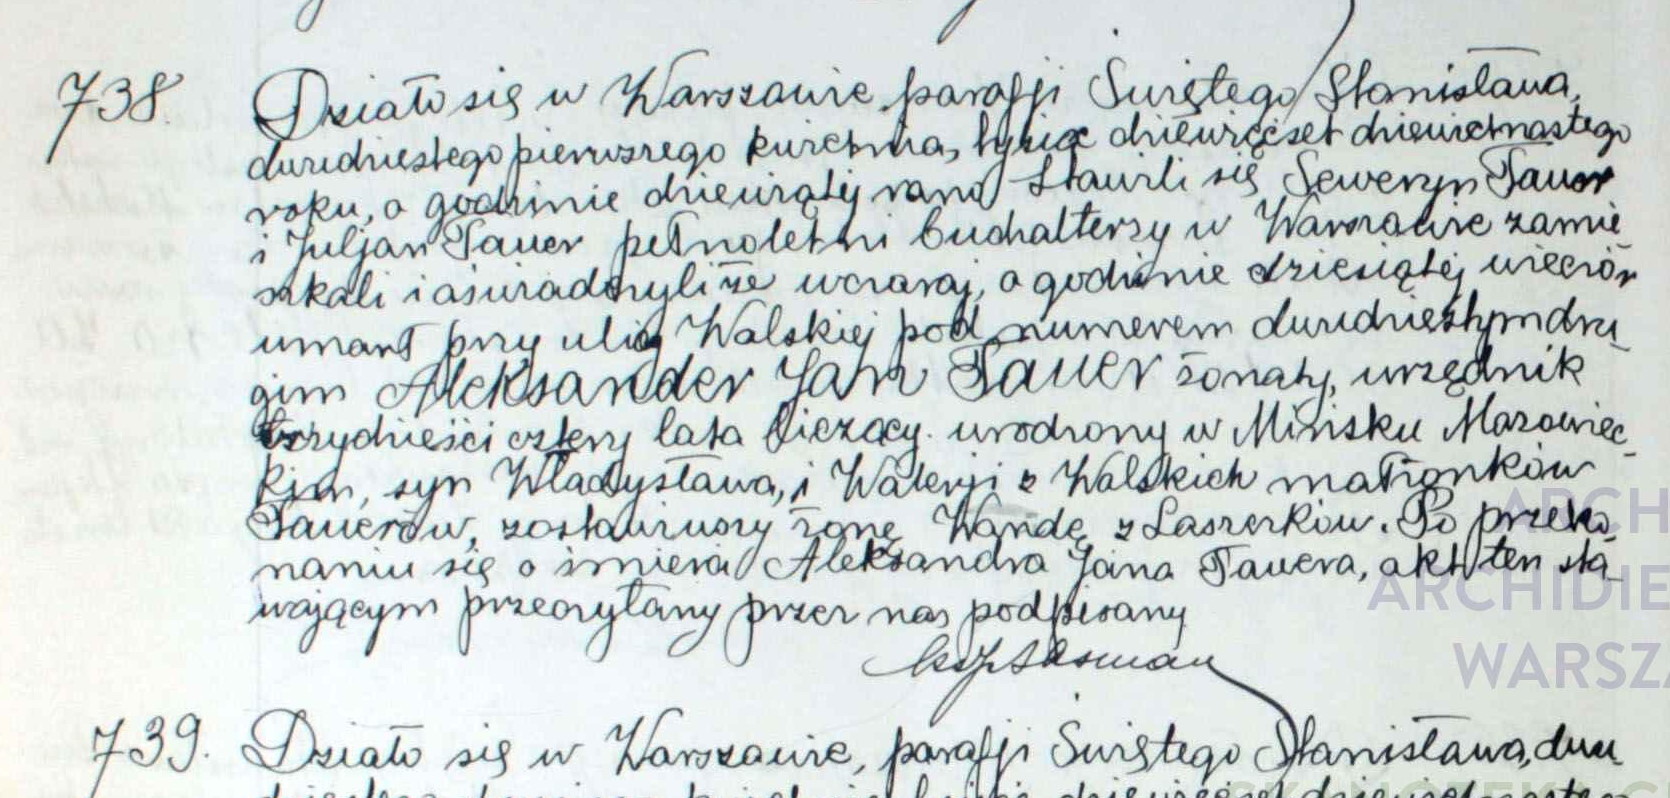 738. Działo się w Warszawie, parafji Świętego Stanisława,
dwudziestego pierwszego kwietnia, tysiąc dziewięćset dziewietnastego
roku, o godzinie dziewiątej rano Stawili się Seweryn Tauer
i Juljan Tauer pełnoletni buchalterzy w Warszawie zamie-
szkali i oświadczyli że wczoraj, o godzinie dziesiątej wieczór
umarł przy ulicy Wolskiej pod numerem dwudziestym dru-
gim Aleksander Jan Tauer żonaty, urzędnik
trzydzieści cztery lata liczący. urodzony w Mińsku Mazowiec-
kim, syn Władysława, i Walerji z Wolskich małżonków
Tauerów, zostawiwszy żonę Wandę z Laszczków. Po przeko-
naniu się o śmierci Aleksandra Jana Tauera, akt ten sta-
wającym przeczytany przez nas podpisany
739. Działo się w Warszawie, parafji Świętego Stanisława, dwu
ARCH
ARCHIDIE
WARSZA